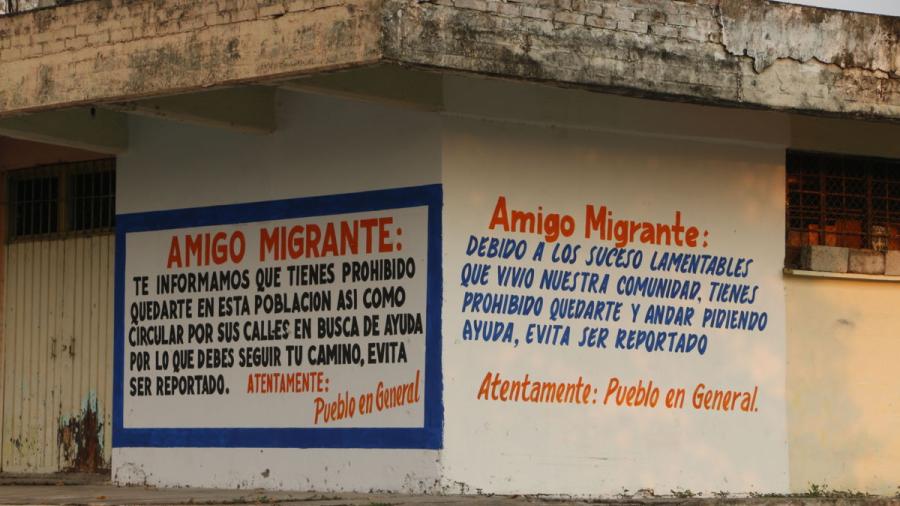 AMIGO MIGRANTE:
TE INFORMAMOS QUE TIENES PROHIBIDO
QUEDARTE EN ESTA POBLACION ASI COMO
CIRCULAR POR SUS CALLES EN BUSCA DE AYUDA
POR LO QUE DEBES SEGUIR TU CAMINO, EVITA
SER REPORTADO. ATENTAMENTE:
Pueblo en General
Amigo Migrante:
DEBIDO A LOS SUCESO LAMENTABLES
QUE VIVIO NUESTRA COMUNIDAD, TIENES
PROHIBIDO QUEDARTE Y ANDAR PIDIENDO
AYUDA, EVITA SER REPORTADO
Atentamente: Pueblo en General.